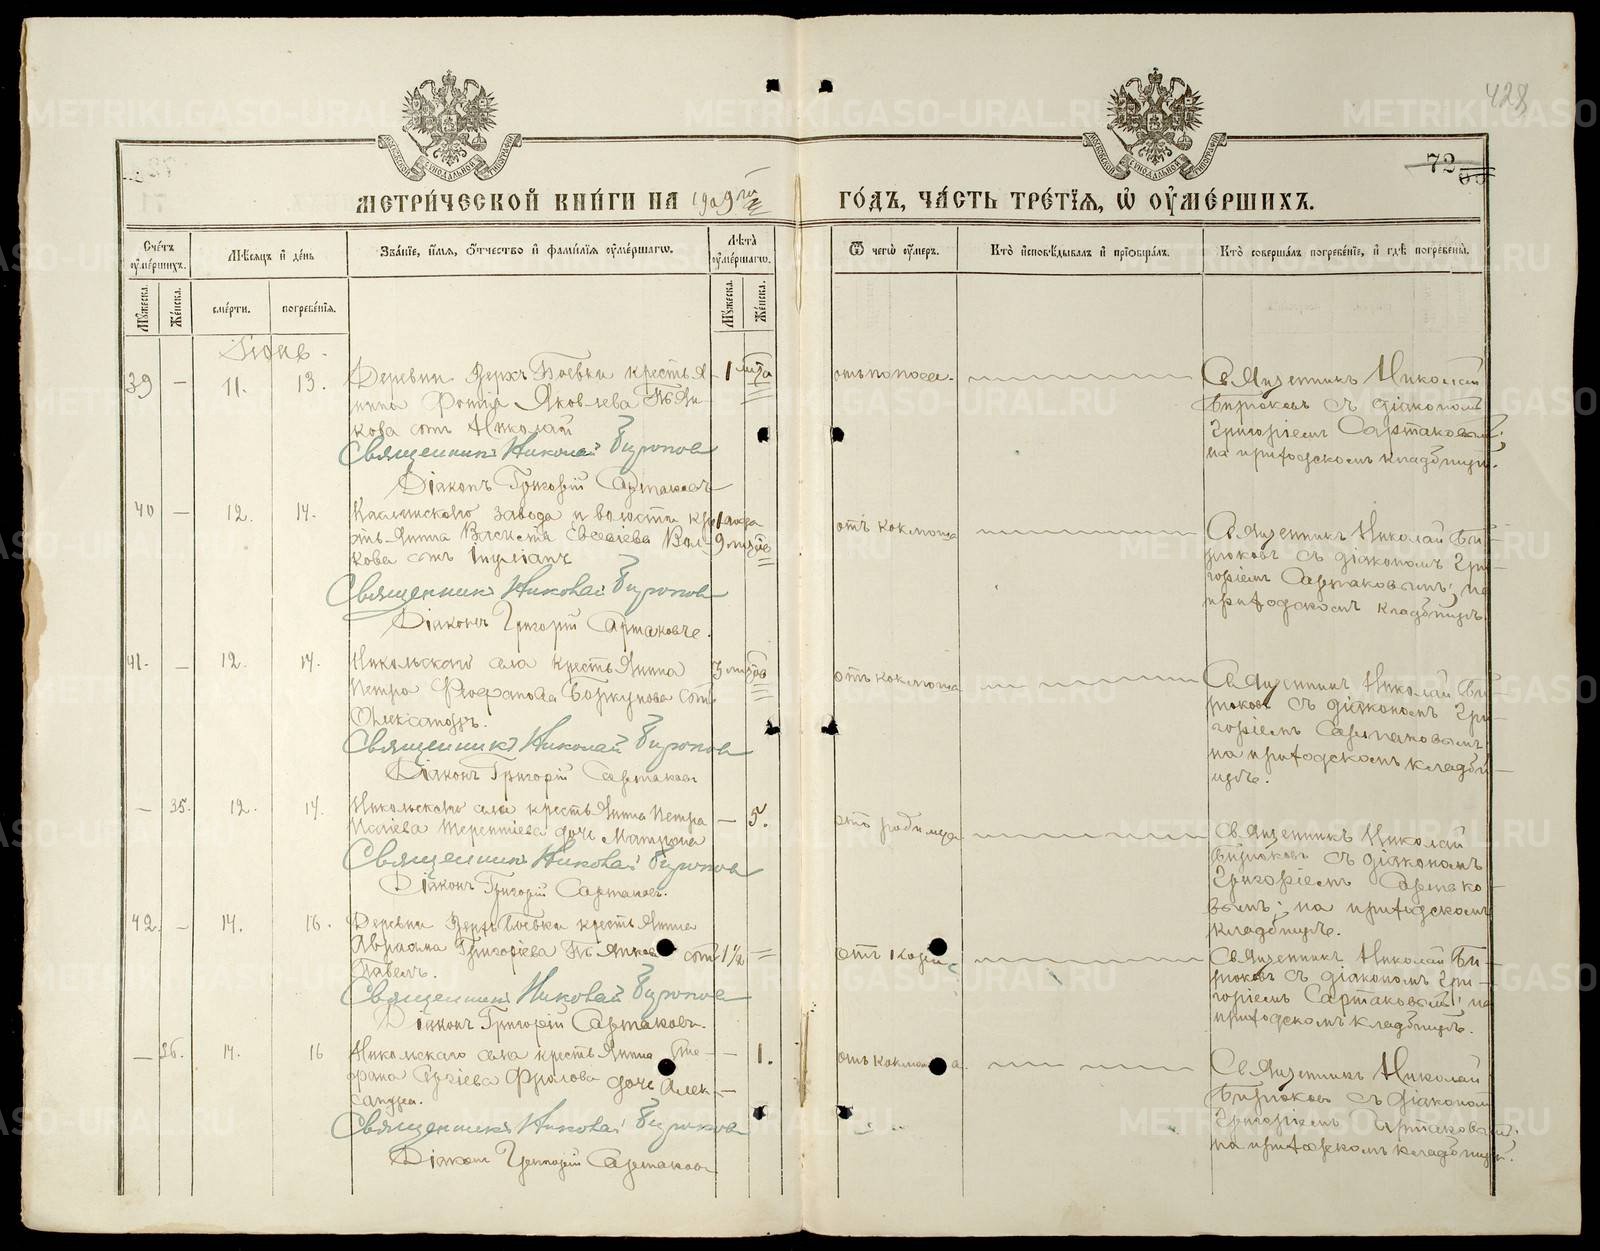 428
72
МЕТРИ́ЧЕСКОЙ КНИ́ГИ НА 1909 го́дъ, ЧА́СТЬ ТРЕ́ТІЯ, Ѡ ОУМЕ́РШИХЪ.
Сче́тъ оуме́ршихъ.
Мѣсяцъ и день
Зва́ніе, и́мя, ѻ́тчество и фами́лія оуме́ршагѡ.
Лѣта̀ оуме́ршагѡ.
Ѿ чегѡ̀ оу́меръ.
Кто̀ исповѣ́дывалъ и пріѻбща́лъ.
Кто̀ соверша́лъ погребе́ніе, и гдѣ̀ погребе́ны.
Му́жеска. Же́нска.
сме́рти. погребе́нія.
Му́жеска. Же́нска.
Іюнь.
39 — 11. 13. Деревни Верхъ Боевки крестья- 1 отъ поноса.
нина Фотія Яковлева Пьян-
кова сынъ Николай
Священникъ Николай Бирюковъ
Діаконъ Григорій Сартаковъ
Священникъ Николай
Бирюковъ съ діакономъ
Григоріемъ Сартаковымъ;
на приходскомъ кладбищѣ.
40 — 12. 14. Каслинскаго завода и волости кре- 1 года отъ коклюша
стьянина Василія Евсеіева Вол-
кова сынъ Іуліанъ
Священникъ Николай Бирюковъ
Діаконъ Григорій Сартаковъ.
Священникъ Николай Би-
рюковъ съ діакономъ Гри-
горіемъ Сартаковымъ; на
приходскомъ кладбищѣ.
41. — 12. 14. Никольскаго села крестьянина 3 отъ коклюша
Петра Феофанова сынъ
Александръ.
Священникъ Николай Бирюковъ
Діаконъ Григорій Сартаковъ
Священникъ Николай Би-
рюковъ съ діакономъ Гри-
горіемъ Сартаковымъ
на приходскомъ кладби-
щѣ.
— 35. 12. 14. Никольскаго села крестьянина Петра — 5. отъ родимца
Исаіева Терентіева дочь Матрона
Священникъ Николай Бирюковъ
Діаконъ Григорій Сартаковъ.
Священникъ Николай
Бирюковъ съ діакономъ
Григоріемъ Сартако-
вымъ; на приходскомъ
кладбищѣ.
42. — 14. 16. Деревни Верхъ Боевки крестьянина
Авраама Григоріева Пьянкова сынъ 1½ отъ кори
Павелъ.
Священникъ Николай Бирюковъ
Діаконъ Григорій Сартаковъ.
Священникъ Николай Би-
рюковъ съ діакономъ Гри-
горіемъ Сартаковымъ; на
приходскомъ кладбищѣ.
— 36. 14. 16 Никольскаго села крестьянина Сте- — 1. отъ коклюша.
фана Сергіева Фролова дочь Алек-
сандра.
Священникъ Николай Бирюковъ
Діаконъ Григорій Сартаковъ
Священникъ Николай
Бирюковъ съ діакономъ
Григоріемъ Сартаковымъ.
на приходскомъ кладбищѣ.
METRIKI.GASO-URAL.RU